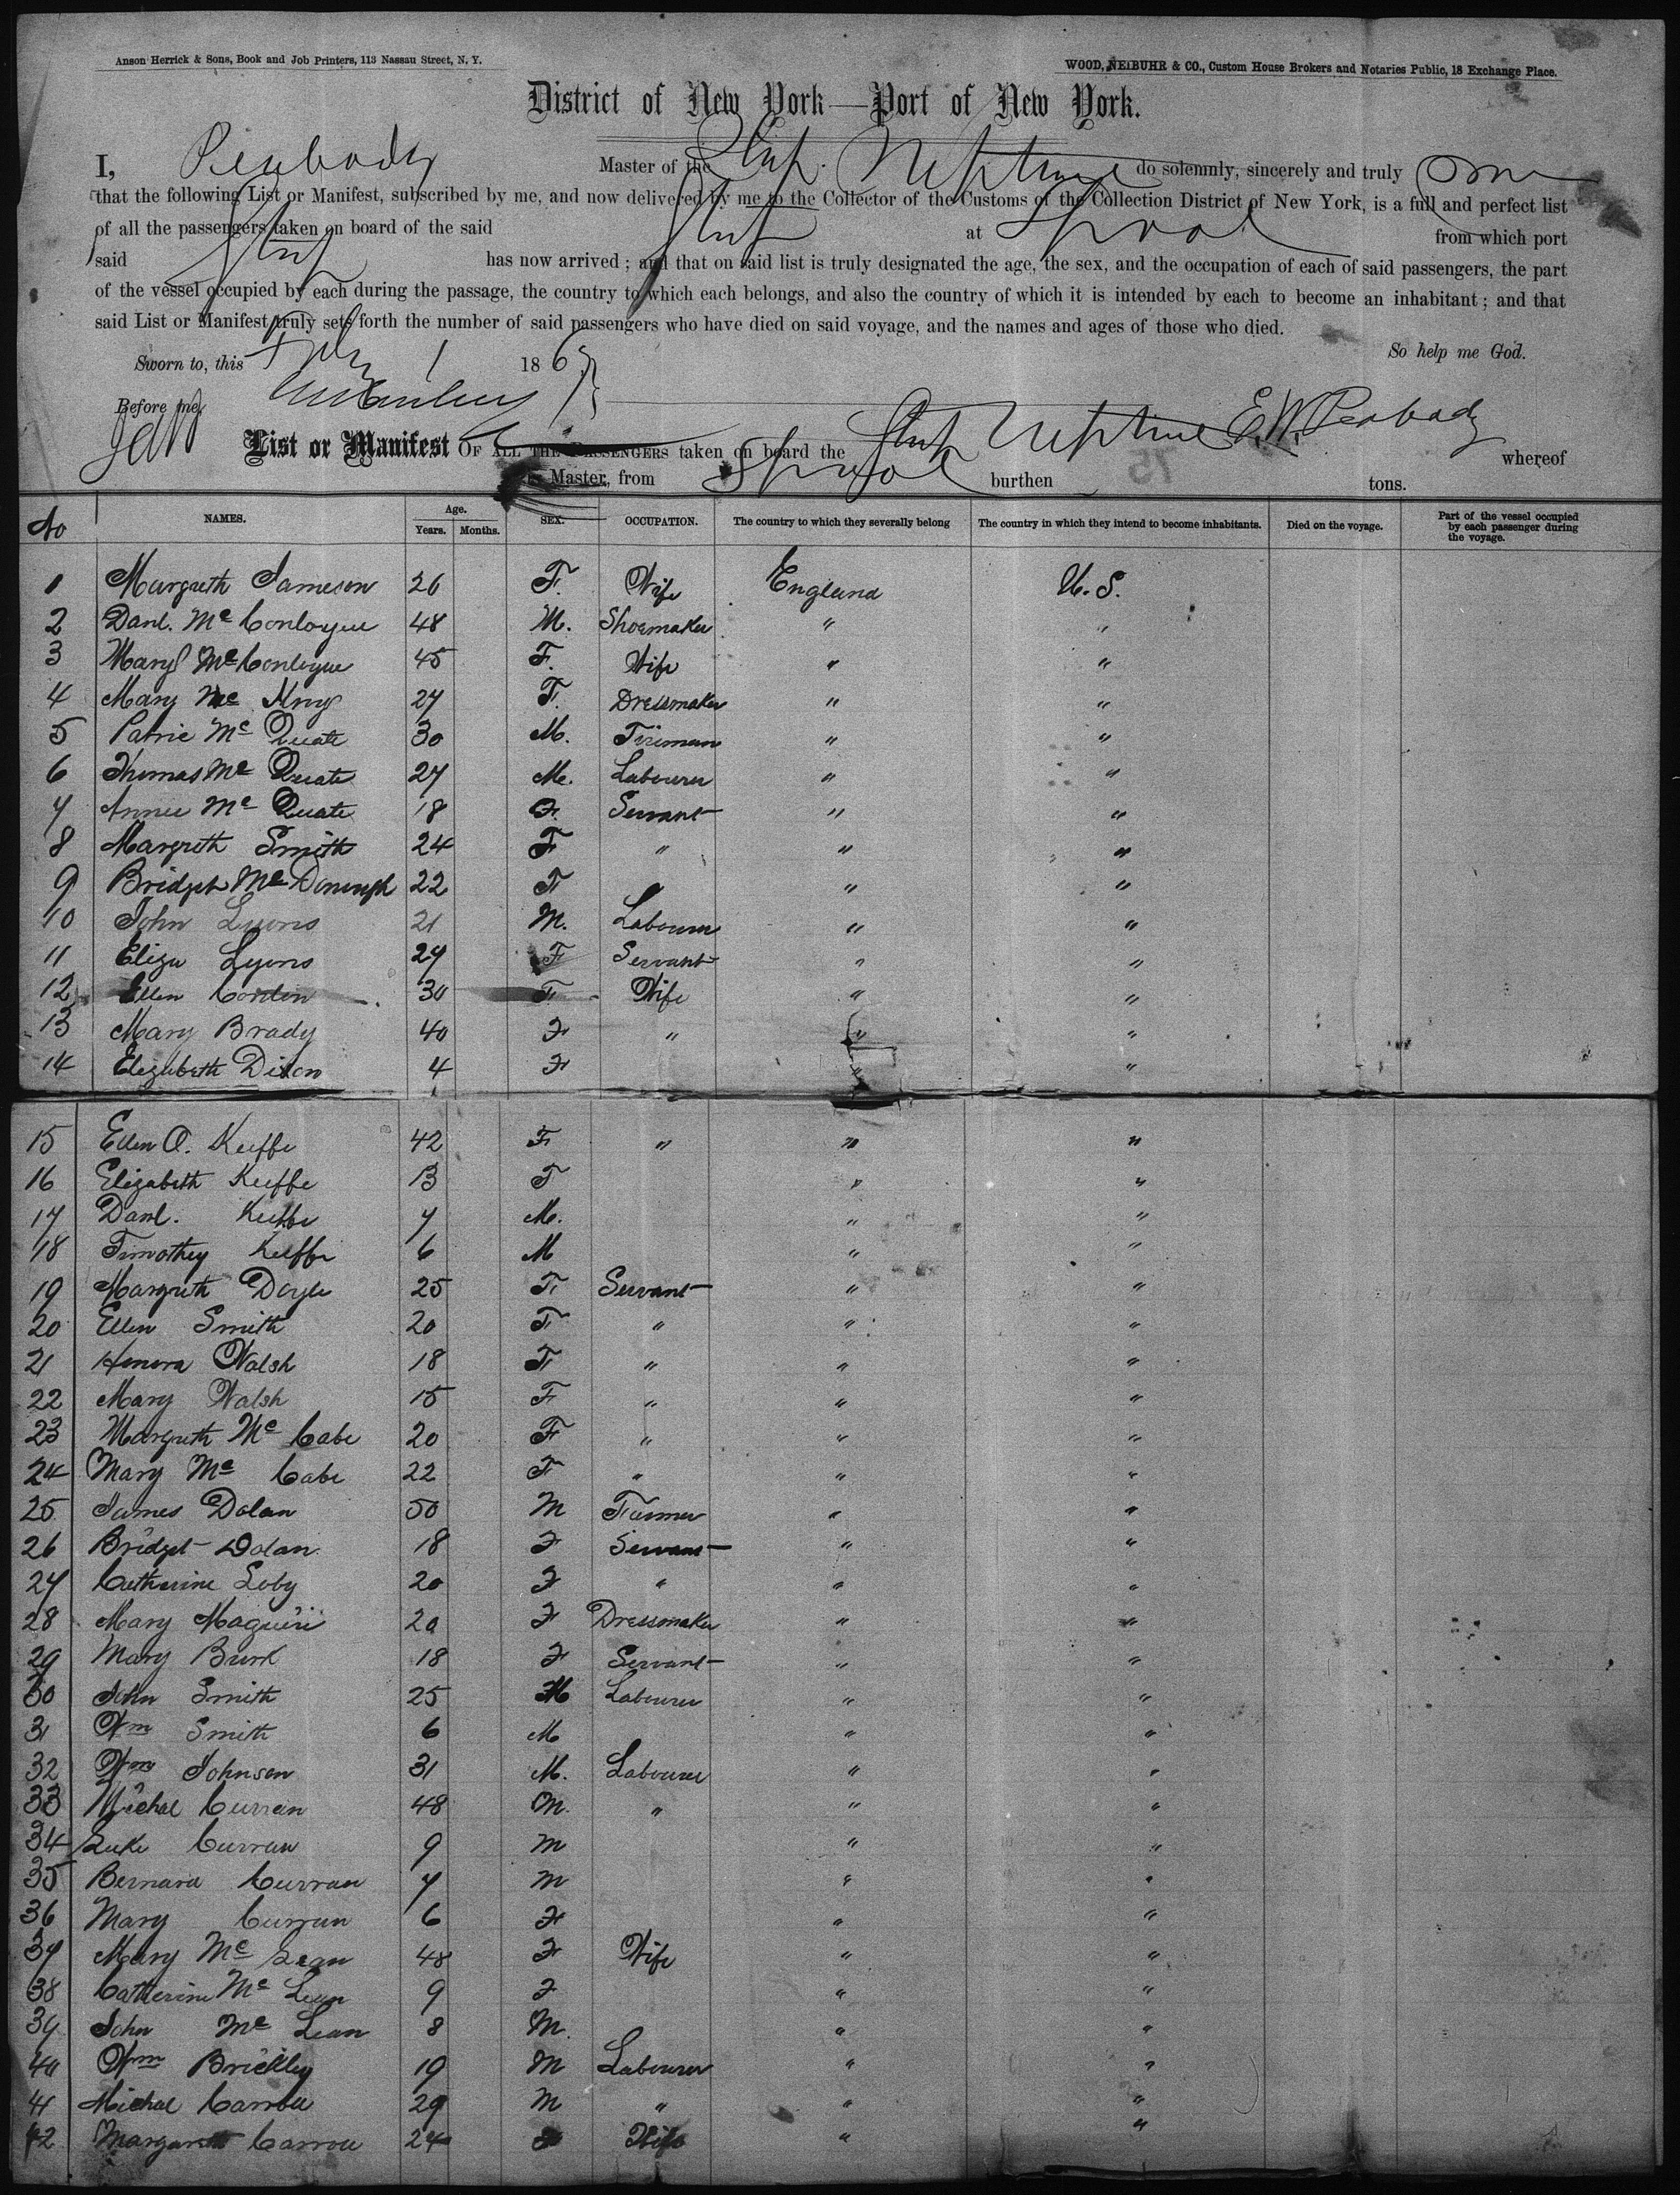 Anson Herrick & Sons, Book and Job Printers, 113 Nassau Street, N. Y.
WOOD, NEIBUHR & CO., Custom House Brokers and Notaries Public, 18 Exchange Place.
District of New York—Port of New York.
I, Peabody Master of the Ship Neptune do solemnly, sincerely and truly
that the following List or Manifest, subscribed by me, and now delivered by me to the Collector of the Customs of the Collection District of New York, is a full and perfect list
of all the passengers taken on board of the said Ship at Lpool from which port
said Ship has now arrived; and that on said list is truly designated the age, the sex, and the occupation of each of said passengers, the part
of the vessel occupied by each during the passage, the country to which each belongs, and also the country of which it is intended by each to become an inhabitant; and that
said List or Manifest truly sets forth the number of said passengers who have died on said voyage, and the names and ages of those who died.
So help me God.
Sworn to, this 1 186
Before me,
List or Manifest OF ALL THE PASSENGERS taken on board the Ship Neptune E. W. Peabody whereof
is Master, from Lpool burthen tons.
No NAMES. Age. Years. Months. SEX. OCCUPATION. The country to which they severally belong The country in which they intend to become inhabitants. Died on the voyage. Part of the vessel occupied by each passenger during the voyage.
1 Margreth Jameson 26 F. Wife England U. S.
2 Danl. Mc Conlogue 48 M. Shoemaker " "
3 Mary Mc Conlogue 45 F. Wife " "
4 Mary Mc 27 F. Dressmaker " "
5 Patric Mc Quate 30 M. Fireman " "
6 Thomas Mc Quate 27 M. Labourer " "
7 Annee Mc Quate 18 F. Servant " "
8 Margreth Smith 24 F " " "
9 Bridget Mc Donough 22 F " "
10 John Lyons 21 M. Labourer " "
11 Eliza Lyons 29 F Servant " "
12 Ellen Conlon 30 F Wife " "
13 Mary Brady 40 F " " "
14 Elizabeth Dixon 4 F " "
15 Ellen O. Keiffe 42 F " " "
16 Elizabeth Keiffe 13 F " "
17 Danl. Keiffe 7 M. " "
18 Timothey Keiffe 6 M " "
19 Margreth Doyle 25 F Servant " "
20 Ellen Smith 20 F " " "
21 Honora Walsh 18 F " " "
22 Mary Walsh 15 F " " "
23 Margreth Mc Cabe 20 F " " "
24 Mary Mc Cabe 22 F " " "
25 James Dolan 50 M Farmer " "
26 Bridget Dolan 18 F Servant " "
27 Catherine Loby 20 F " " "
28 Mary Maguire 20 F Dressmaker " "
29 Mary Burk 18 F Servant " "
30 John Smith 25 M Labourer " "
31 Wm Smith 6 M " "
32 Wm Johnson 31 M. Labourer " "
33 Michal Curran 48 M. " " "
34 Luke Curran 9 M " "
35 Bernard Curran 7 M " "
36 Mary Curran 6 F " "
37 Mary Mc Lean 48 F Wife " "
38 Catherine Mc Lean 9 F " "
39 John Mc Lean 8 M. " "
40 Wm Brickley 19 M Labourer " "
41 Michal Carroll 29 M " " "
42 Margarett Carroll 24 F Wife " "